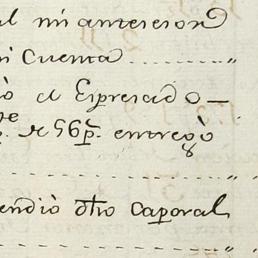 al mi antecesor
mi Cuenta
ò el Espresado
de 56 p.s entregò
endiò dho Caporal